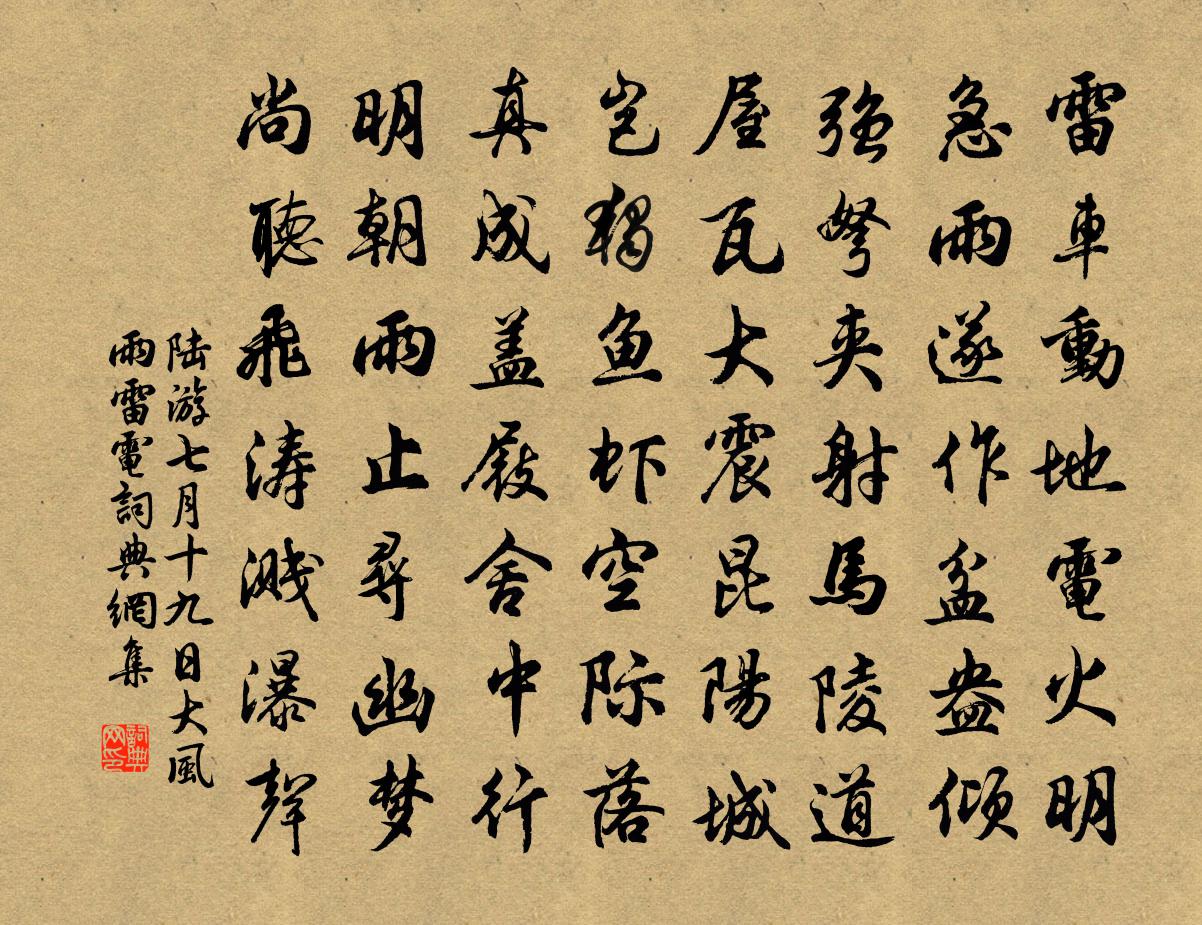 雷車動地電火明
急雨遂作盆盎傾
强弩夾射馬陵道
屋瓦大震昆陽城
豈獨鱼虾空际落
真成盖屐舍中行
明朝雨止尋幽梦
尚聽飛濤濺瀑聲
陆游七月十九日大風
雨雷電詞典網集
詞典
网印